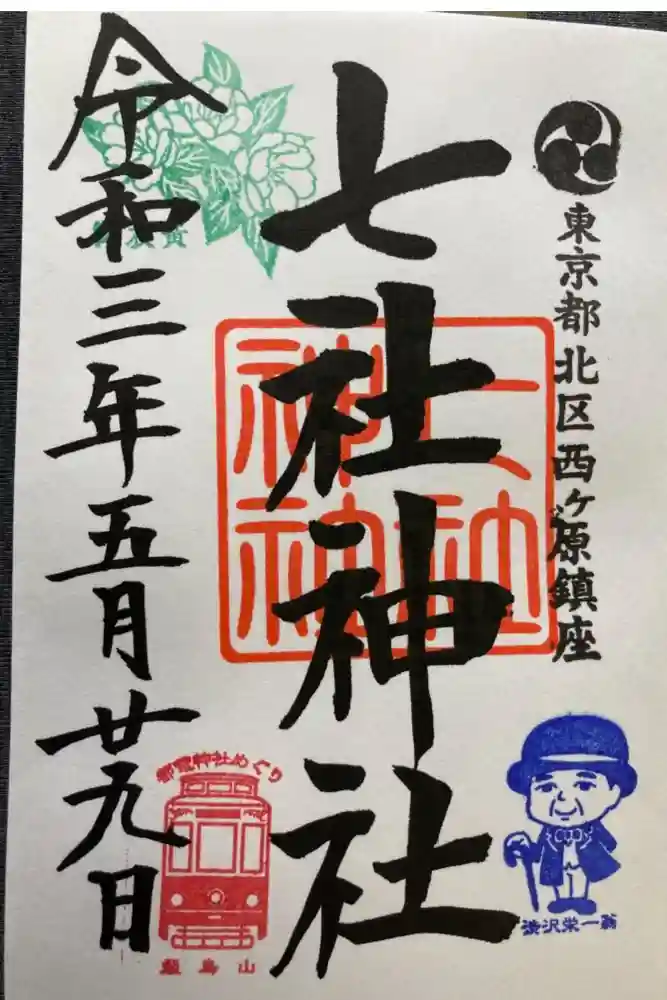 東京都北区西ヶ原鎮座
七社神社
七社神社
令和三年五月廿九日
都電神社めぐり
飛鳥山
渋沢栄一翁